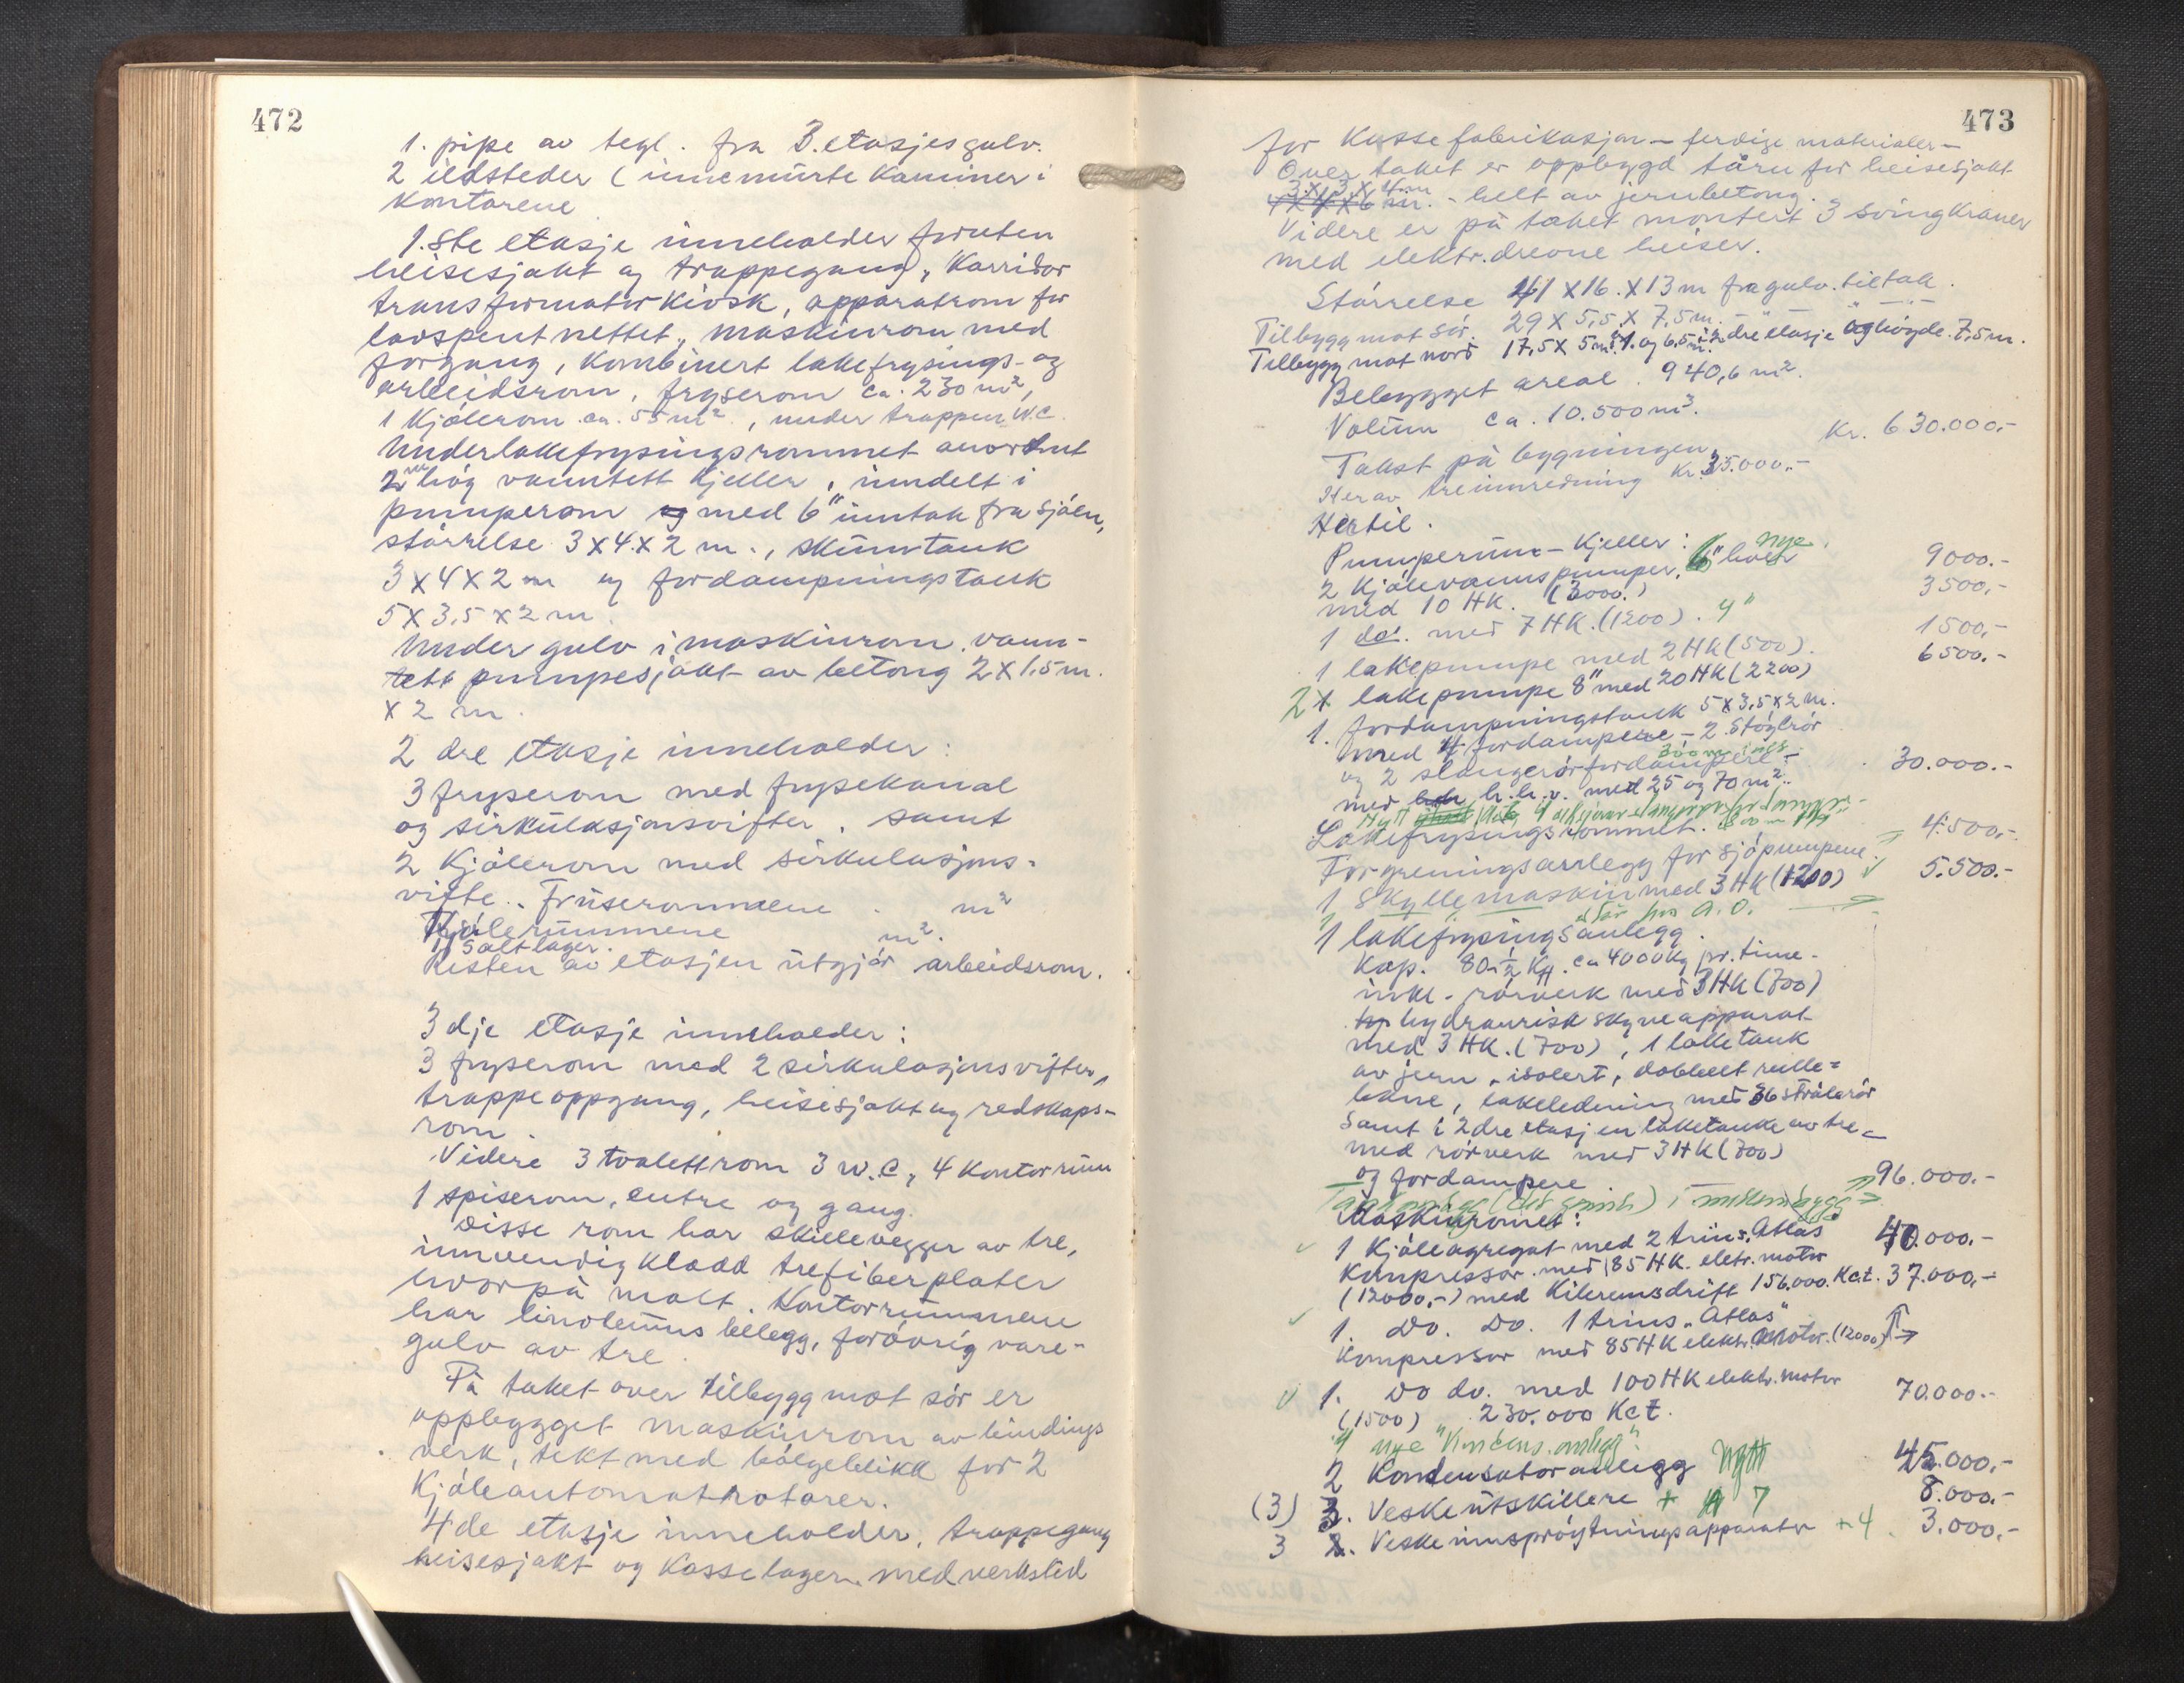 472
1. pipe av tegl. fra 3. etasjesgulv.
2 ildsteder (innemurte Kaminer i
Kontorene
1.ste etasje inneholder foruten
heisesjakt og trappegang, Karridor
transformatorkiosk, apparatrom for
lavspentnettet, maskinrom med
forgang, kombinert lakefrysings- og
arbeidsrom, fryserom ca. 230 m²,
1 Kjölerom ca. 55 m², under trappen W.C.
Underlakefrysingsrommet anordnet
2 m höy vanntett Kjeller, inndelt i
pumperom og med 6" inntak fra sjöen,
störrelse 3 x 4 x 2 m.,
3 x 4 x 2 m og fordampningstank
5 x 3,5 x 2 m.
Under gulv i maskinrom. vann-
tett pumpesjakt av betong 2 x 1,5 m.
x 2 m.
2 dre etasje inneholder:
3 fryserom med frysekanal
og sirkulasjonsvifter, samt
2 Kjölerom med sirkulasjons-
vifte. Fruserommene . m²
Kjölerummene m².
1 Saltlager.
Resten av etasjen utgjör arbeidsrom.
3 dje etasje inneholder:
3 fryserom med 2 sirkulasjonsvifter,
trappeoppgang, heisesjakt og redskaps-
rom.
Videre 3 toalettrom 3 W.C, 4 Kontorrum
1 spiserom, entre og gang.
Disse rom har skillevegger av tre,
innvendig kledd trefiberplater
hvorpå malt. Kontorrummene
har linoleums belegg, forövrig vare-
gulv av tre.
På taket over tilbygg mot sör er
oppbygget maskinrom av bindings
verk, tekt med bölgeblikk for 2
Kjöleautomatrotorer.
4de etasje inneholder, trappegang
heisesjakt og Kasselager med verksted
473
for Kassefabrikasjon - ferdige materialer -
Over taket er oppbygd tårn for heisesjakt
3 x 3 x 4 m
4 x 4 x 6 m. - helt av jernbetong.
Videre er på taket montert 3 svingkraner
med elektr. drevne heiser.
Störrelse 41 x 16 x 13 m fra gulv til tak.
Tilbygg mot Sör. 29 x 5,5 x 7,5 m. - " -
Tilbygg mot nord 17,5 x 5 m i 1. og 6,5 m i 2 dre etasje og höyde 7,5 m.
Bebygget areal. 940,6 m².
Volum ca. 10.500 m³.
Takst på bygningen, Kr. 630.000,-
Herav treinnredning Kr. 35.000,-
Hertil.
Pumperum - Kjeller: nye.
2 Kjölevannspumper, 6" hver 9000.-
med 10 HK. (3000.) 3500,-
1 do. med 7 HK. (1200). 4"
1 lakepumpe med 2 HK (500). 1500,-
2 x lakepumpe 8" med 20 HK (2200) 6500.-
1. fordampningstank 5 x 3,5 x 2 m.
med 4 fordampere - 2 Stöglrör
og 2 slangerörfordampere -
med h.h.v. med 25 og 70 m². 30.000.-
Lakefrysingsrommet.
Forgreningsanlegg for sjöpumpene. 4.500,-
1 Skyllemaskin med 3 HK (1200) 5.500.-
1 lakefrysingsanlegg.
Kap. 80 ½ Kg. ca 4000 Kg pr. time.
inkl. rörverk med 3 HK (700)
hydraurisk skyveapparat
med 3 HK. (700), 1 laketank
av jern, isolert, dobbelt rulle-
bane, lakeledning med 36 strålerör
Samt i 2 dre etasjen laketanke av tre
med rörverk med 3 HK (700)
og fordampere 96.000.-
Maskinromet:
1 Kjöleagregat med 2 trins. Atlas 40.000.-
Kompressor. med 185 HK. elektr. motor
(12000,-) med Kileremsdrift 156.000. Kct. 37.000,-
1. Do. Do. 1 trins "Atlas"
Kompressor med 85 HK elektr. motor. (12000)
1. Do do. med 100 HK elektr. motor 70.000.-
(1500) 230.000 Kct.
4 nye "Kondens. anlegg".
2 Kondensatoranlegg Nytt 45.000,-
(3) 3. Veskeutskillere + 7 8.000.-
3 2. Veskeinnspröytningsapparater + 4. 3.000,-